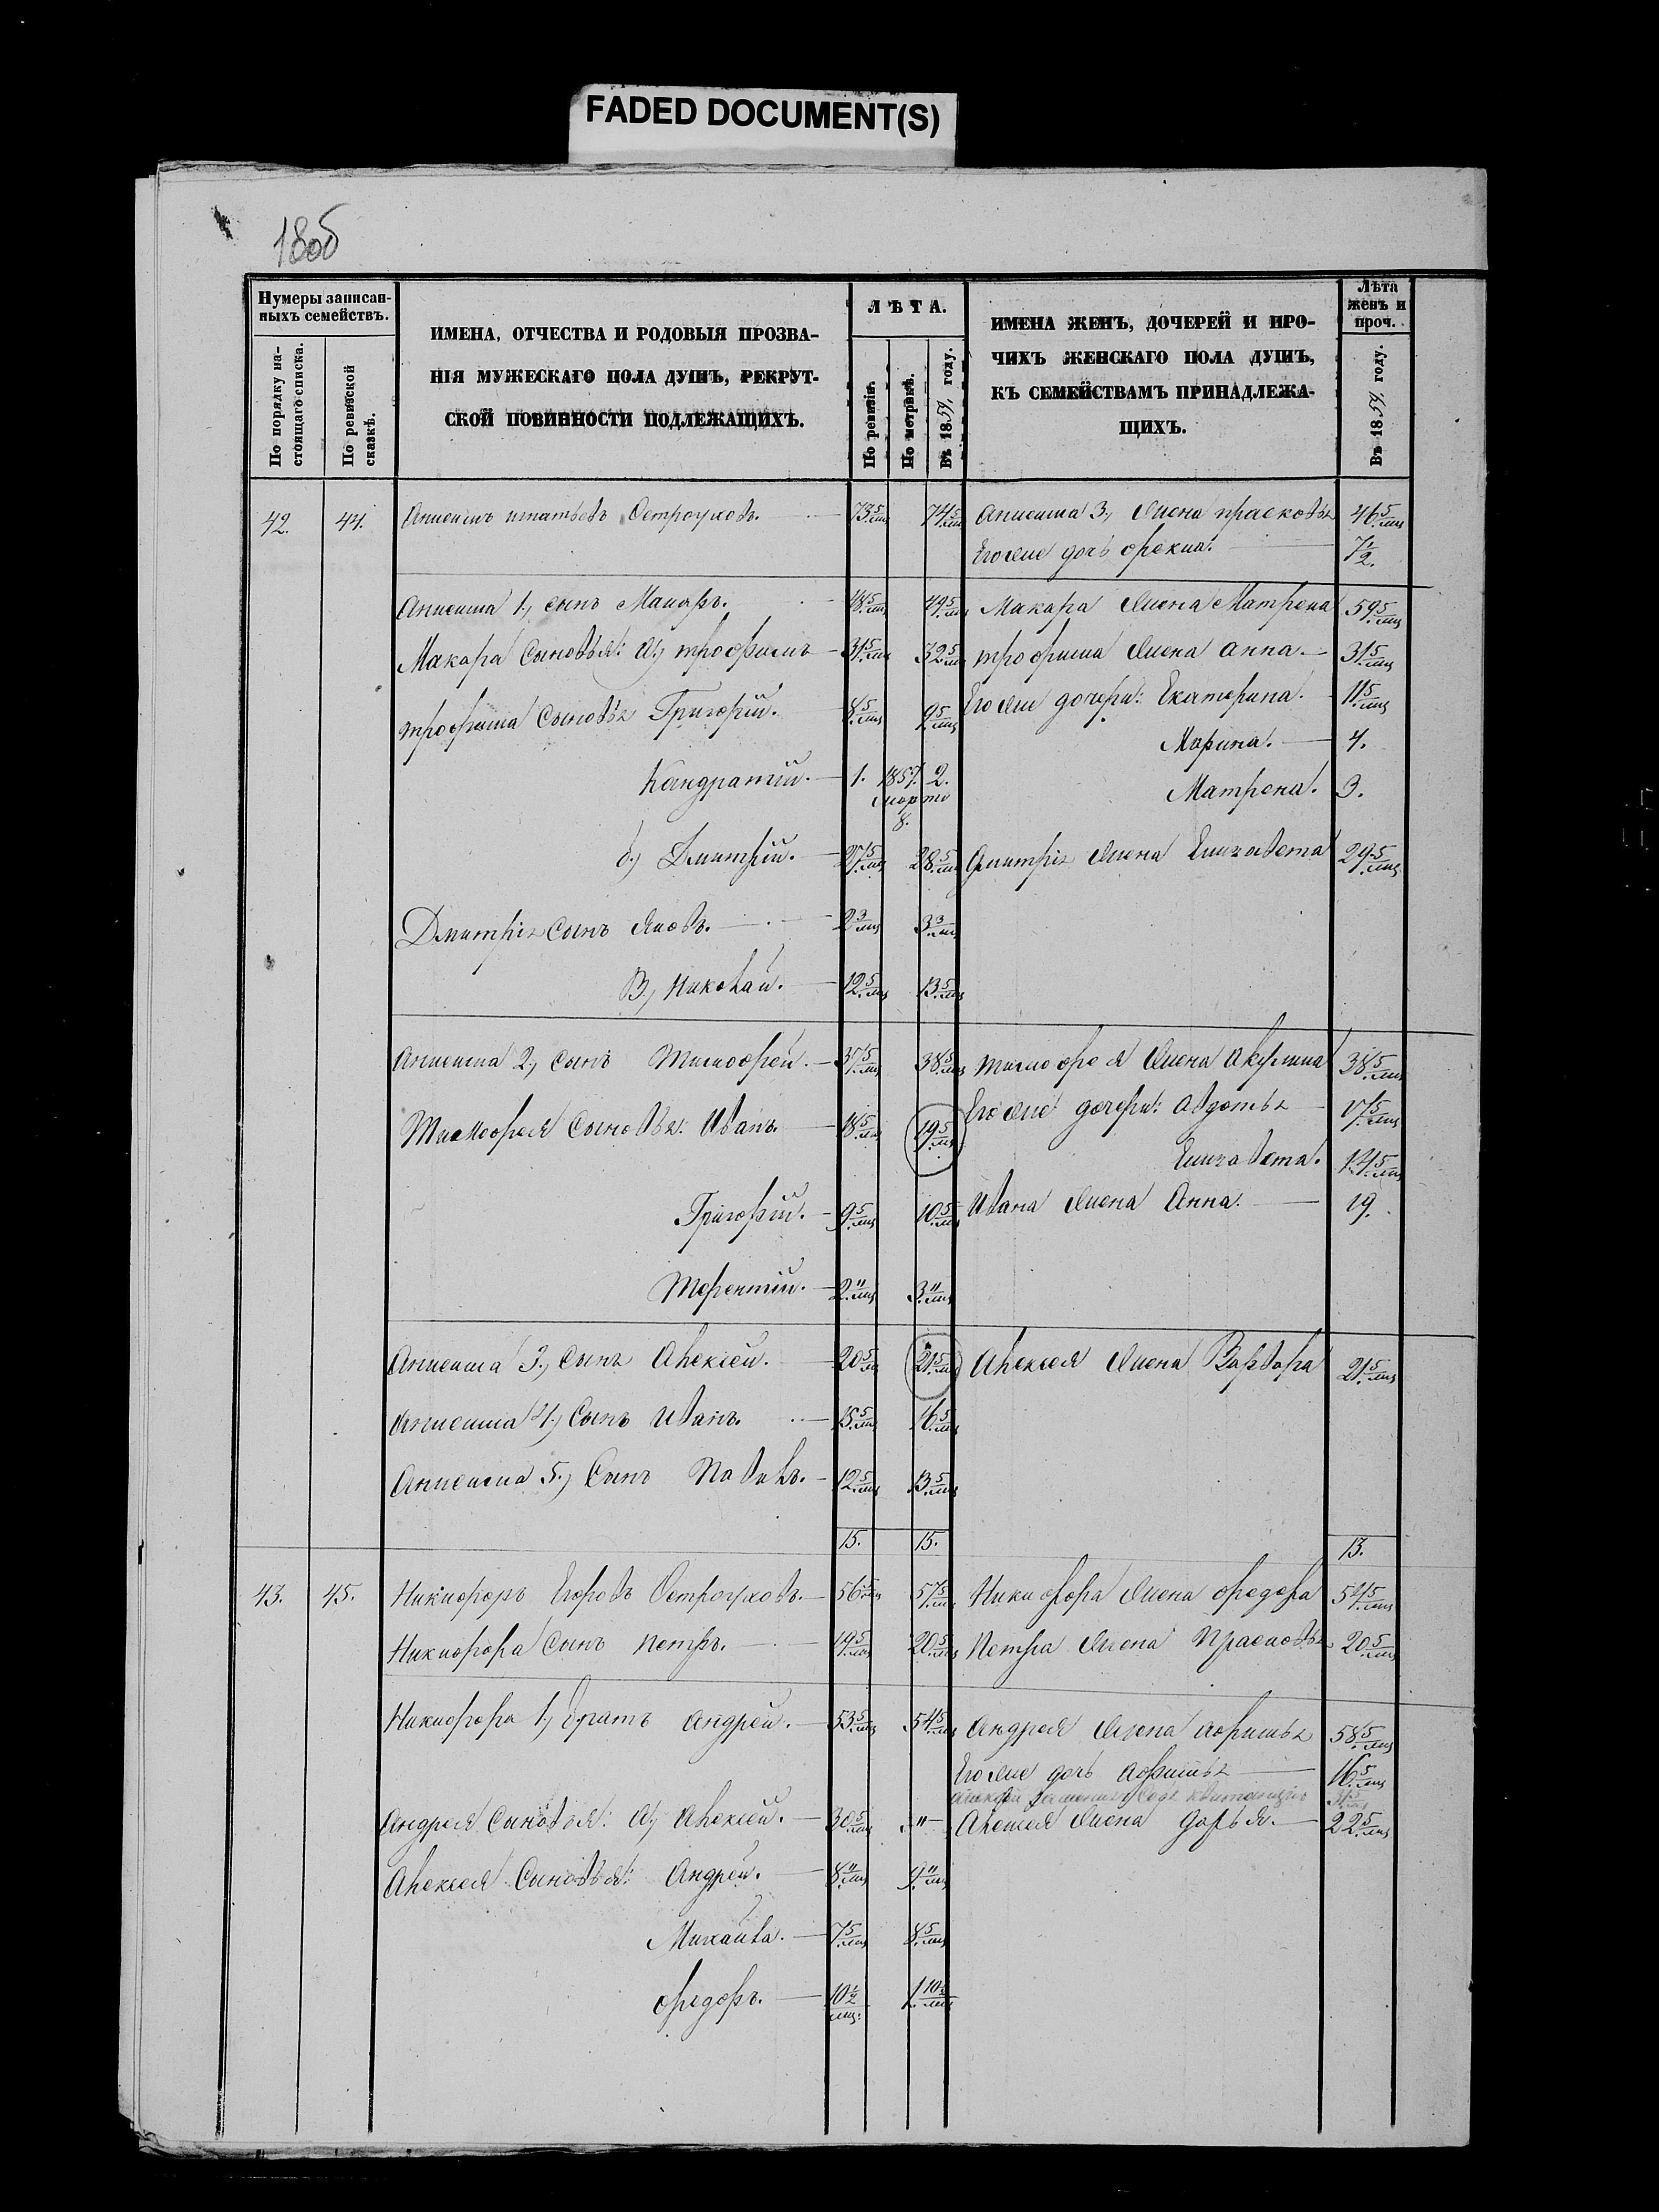 FADED DOCUMENT(S)
180об
Нумеры записан-
ныхъ семействъ.
По порядку на-
стоящаго списка.
По ревизской
сказкѣ.
ИМЕНА, ОТЧЕСТВА И РОДОВЫЯ ПРОЗВА-
НІЯ МУЖЕСКАГО ПОЛА ДУШЪ, РЕКРУТ-
СКОЙ ПОВИННОСТИ ПОДЛЕЖАЩИХЪ.
ЛѢТА.
По ревизіи.
По метрикѣ.
Въ 1859, году.
ИМЕНА ЖЕНЪ, ДОЧЕРЕЙ И ПРО-
ЧИХЪ ЖЕНСКАГО ПОЛА ДУШЪ,
КЪ СЕМЕЙСТВАМЪ ПРИНАДЛЕЖА-
ЩИХЪ.
Лѣта
женъ и
проч.
Въ 1859, году.
42. 44. Анисимъ игнатьевъ Остроуховъ. 73 5/мц 74 5/мц Анисима 3, жена прасковья 46 5/мц
Его же дочь фекла. 7 1/2.
Анисима 1, сынъ Макаръ. 48 5/мц 49 5/мц Макара жена Матрена 59 5/мц
Макара Сыновья: а, трофимъ 31 5/мц 32 5/мц трофима жена анна. 31 5/мц
трофима Сыновья Григорій. 8 5/мц 9 5/мц Его же дочери: Екатерина. 11 5/мц
Марина. 4.
Кандратій. 1. 1857. 2.
марта
8.
Матрена. 3.
б, Дмитрій. 27 5/мц 28 5/мц Дмитрія жена Елизавета 29 5/мц
Дмитрія Сынъ Яковъ. 2 3/мц 3 3/мц
В, Николай. 12 5/мц 13 5/мц
Анисима 2, сынъ Тимофей. 37 5/мц 38 5/мц тимофея жена Акулина 38 5/мц
Тимофея Сыновья: Иванъ. 18 5/мц 19 5/мц Его же дочери: авдотья 17 5/мц
Елизавета. 14 5/мц
Григорій. 9 5/мц 10 5/мц Ивана жена Анна. 19.
Терентій. 2 11/мц 3 11/мц
Анисима 3, сынъ Алексей. 20 5/мц 21 5/мц Алексея жена Варвара 21 5/мц
Анисима 4, Сынъ иванъ. 15 5/мц 16 5/мц
Анисима 5, Сынъ Павелъ. 12 5/мц 13 5/мц
15. 15. 13.
43. 45. Никифоръ Егоровъ Остроуховъ. 56 5/мц 57 5/мц Никифора жена федора 54 5/мц
Никифора Сынъ петръ. 19 5/мц 20 5/мц Петра жена Прасковья 20 5/мц
Никифора 1, братъ андрей. 53 5/мц 54 5/мц Андрея жена афимья 58 5/мц
Его же дочь афимья 16 5/мц
Андрея Сыновья: а, Алексей. 30 5/мц " Алексея жена дарья. 22 5/мц
Алексея Сыновья: Андрей. 8 11/мц 9 11/мц
Михайла. 7 5/мц 8 5/мц
федоръ. 10 1/2 мц. 1 10 1/2 мц